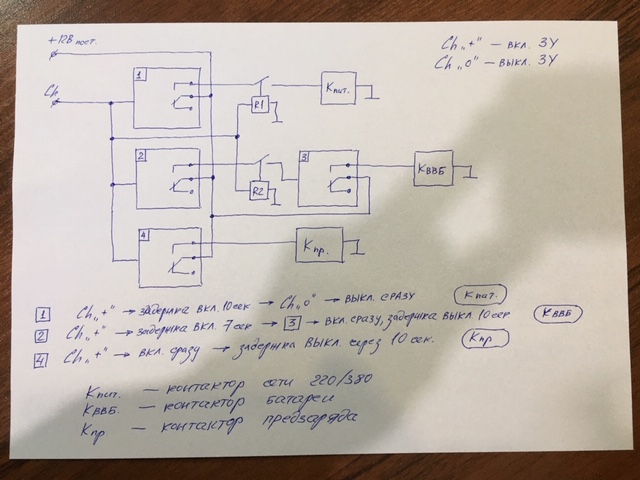 +12В пост.
Ch „+" — вкл. ЗУ
Ch „0" — выкл. ЗУ
Ch
1
R1
Кпит.
2
R2
3
КВВБ
4
Кпр.
1 Ch „+" → задержка вкл. 10 сек → Ch „0" → выкл. сразу Кпит.
2 Ch „+" → задержка вкл. 7 сек → 3 → вкл. сразу, задержка выкл. 10 сек КВВБ
4 Ch „+" → вкл. сразу → задержка выкл. через 10 сек. Кпр
Кпит. — контактор сети 220/380
КВВБ. — контактор батареи
Кпр. — контактор предзаряда